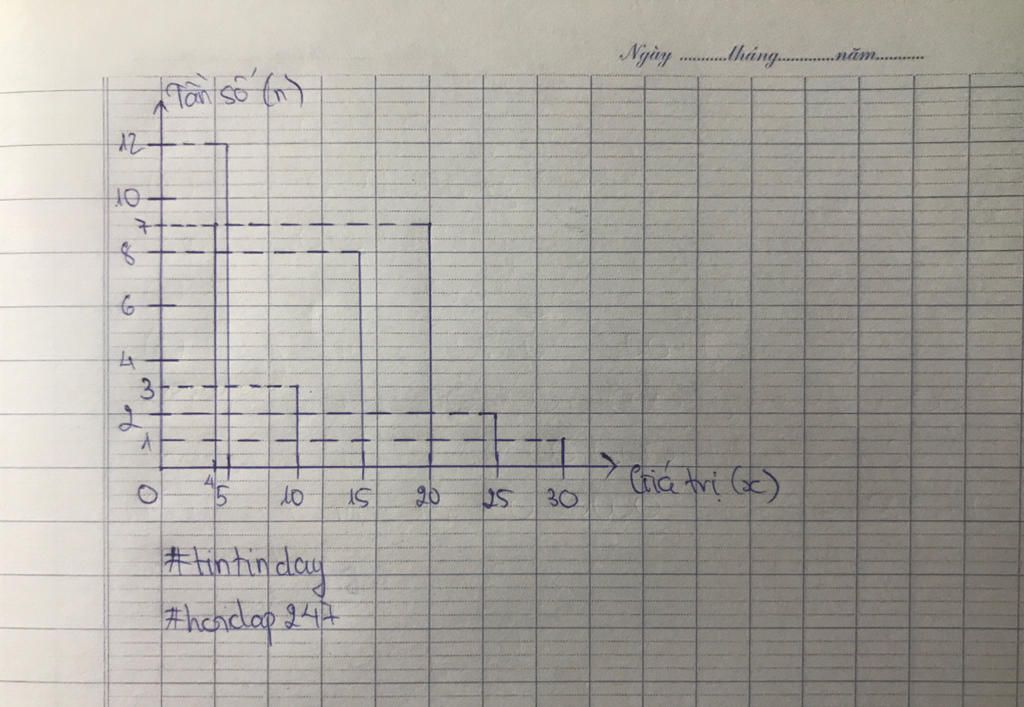 Ngày ..........tháng............năm..........
Tần số (n)
12
10
7
8
6
4
3
2
1
0 4 5 10 15 20 25 30 Giá trị (x)
#tintinday
#hoidap247